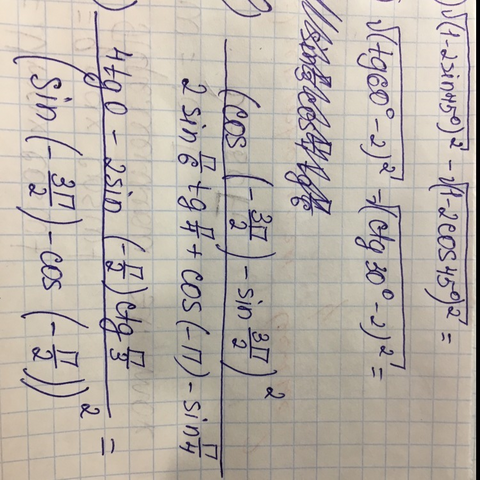 ) √(1-2sin45°)² - √(1-2cos45°)² =
) √(tg60°-2)² - √(ctg30°-2)² =
) (cos (-3π/2) - sin 3π/2)²
2 sin π/6 tg π/4 + cos(-π) - sin π/4
) 4tg0 - 2sin (-π/2) ctg π/3 =
(sin (-3π/2) - cos (-π/2))²